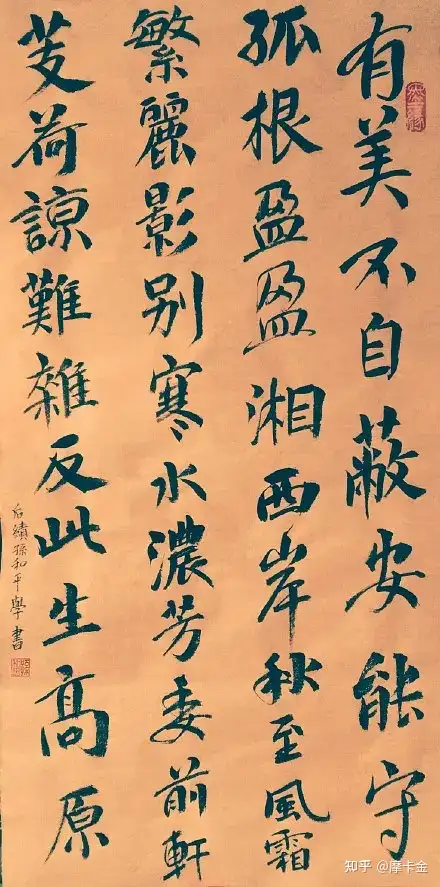 有美不自蔽安能守
孤根盈盈湘西岸秋至風霜
繁麗影别寒水濃芳委前軒
芰荷諒難雜反此生高原
孫和平學書
知乎 @摩卡金